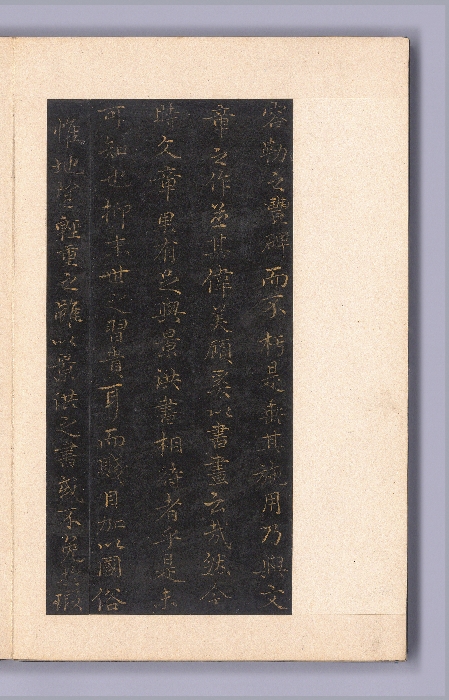 勒之豐碑而不朽是垂其施用乃與文
章之作並其偉美顧奚以書畫云哉然今
時文章果有足與景洪書相侍者乎是未
可知也抑末世之習貴耳而賤目加以國俗
惟地望輕重之雖以景洪之書或不免